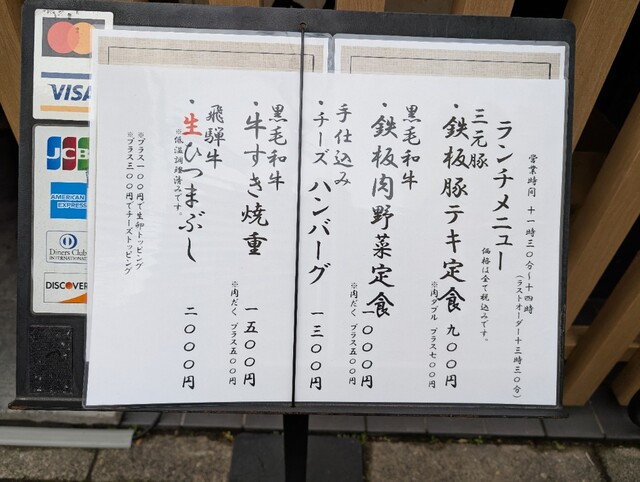 営業時間 十一時三〇分～十四時
(ラストオーダー十三時三〇分)
ランチメニュー
価格は全て税込みです。
三元豚
・鉄板豚テキ定食 九〇〇円
※肉ダブル プラス七〇〇円
黒毛和牛
・鉄板肉野菜定食 一〇〇〇円
※肉だく プラス五〇〇円
手仕込み
・チーズハンバーグ 一三〇〇円
黒毛和牛
・牛すき焼重 一五〇〇円
※肉だく プラス五〇〇円
飛騨牛
・生ひつまぶし 二〇〇〇円
※低温調理済みです。
※プラス一〇〇円で生卵トッピング
※プラス三〇〇円でチーズトッピング
mastercard
VISA
JCB
AMERICAN EXPRESS
Diners Club
INTERNATIONAL
DISCOVER